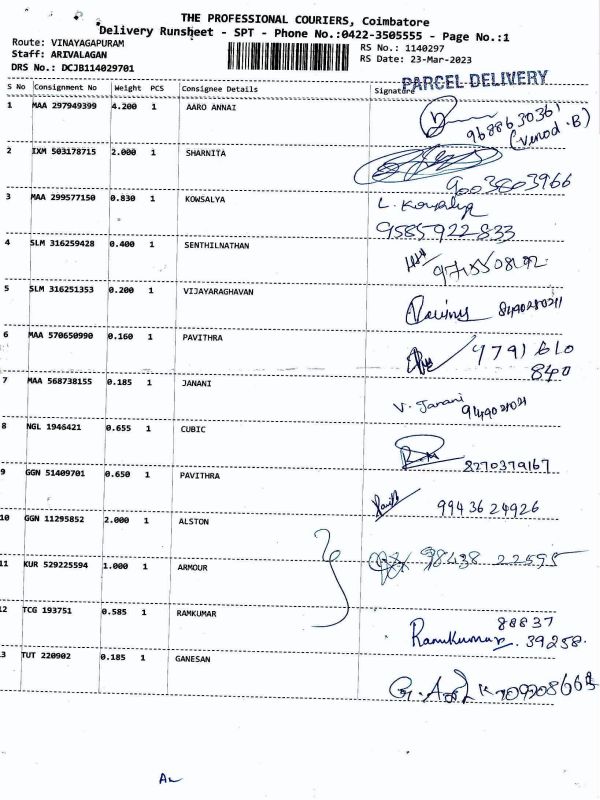 THE PROFESSIONAL COURIERS, Coimbatore
Delivery Runsheet - SPT - Phone No.:0422-3505555 - Page No.:1
Route: VINAYAGAPURAM RS No.: 1140297
Staff: ARIVALAGAN RS Date: 23-Mar-2023
DRS No.: DCJB114029701
PARCEL DELIVERY
S No Consignment No Weight PCS Consignee Details Signature
1 MAA 297949399 4.200 1 AARO ANNAI
9688630361
(Vinod.B)
2 IXM 503178715 2.000 1 SHARNITA
9003803966
3 MAA 299577150 0.830 1 KOWSALYA L. Kowsalya
9585922833
4 SLM 316259428 0.400 1 SENTHILNATHAN
5 SLM 316251353 0.200 1 VIJAYARAGHAVAN
6 MAA 570650990 0.160 1 PAVITHRA 4791610
840
7 MAA 568738155 0.185 1 JANANI V. Janani
8 NGL 1946421 0.655 1 CUBIC
8270379167
9 GGN 51409701 0.650 1 PAVITHRA
9943624926
10 GGN 11295852 2.000 1 ALSTON
11 KUR 529225594 1.000 1 ARMOUR 98438 22595
12 TCG 193751 0.585 1 RAMKUMAR 88837
Ramkumar. 39258.
3 TUT 220902 0.185 1 GANESAN